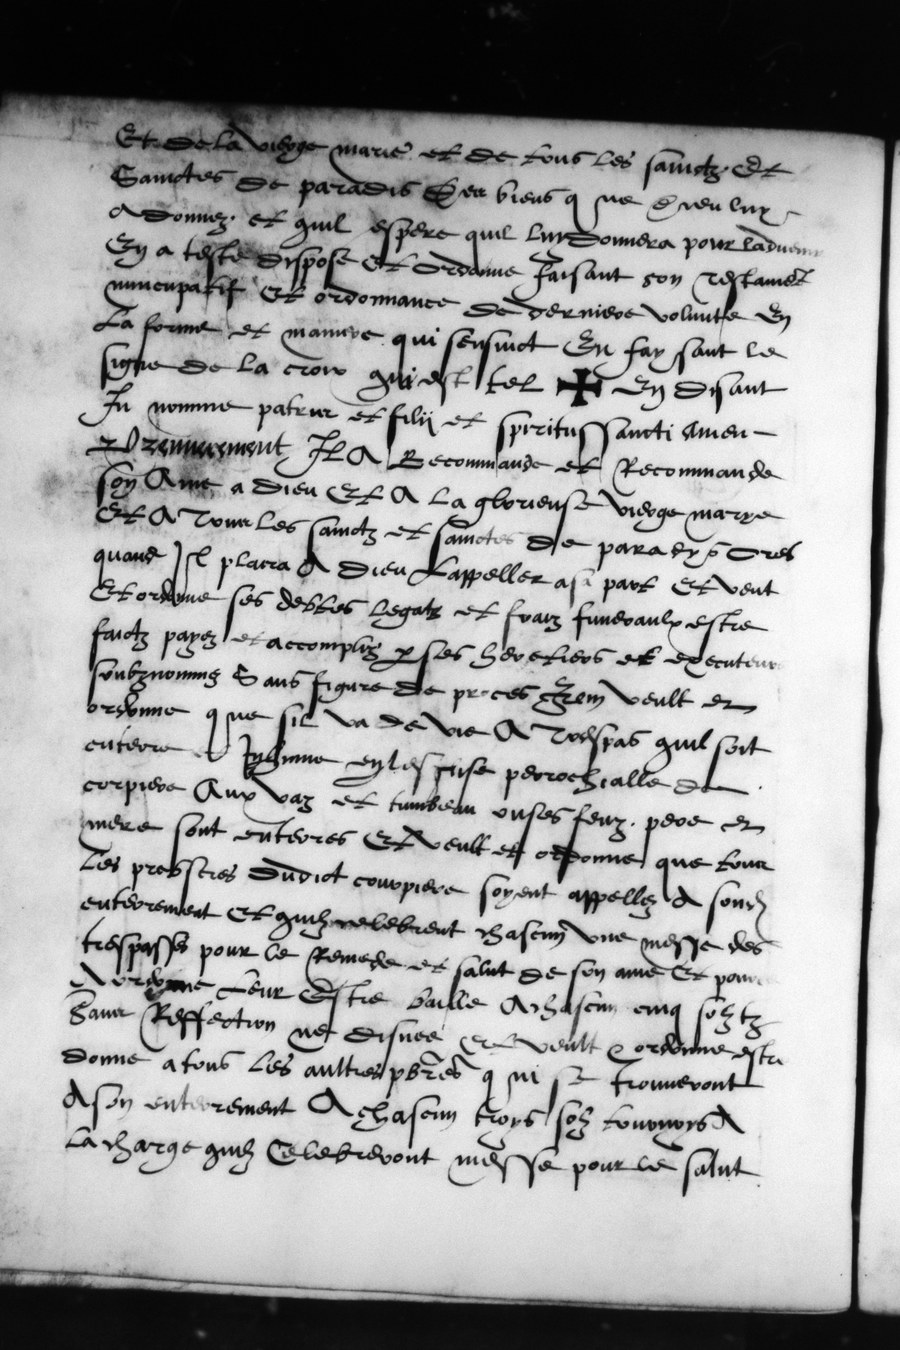 Et de la vierge marie et de tous les sainctz Et
Sainctes de paradis Des biens que dieu luy
a donnez et quil espere quil luy donnera pour ladvenir
En a teste dispose Et ordonne faisant son testament
nuncupatif Et ordonnance de derniere volunte En
La forme et maniere qui sensuict En faysant le
signe de la croix qui est tel ✠ En disant
In nomine patris et filij et spiritussancti Amen
Premierement Il A Recommande et Recommande
son Ame a Dieu Et A La glorieuse vierge marye
Et A Tous les sainctz et sainctes de paradys
quand Il plaira A Dieu Lappeller a sa part Et veut
Et ordonne ses debtes legatz et fraiz funeraulx estre
faictz payez et accompliz par ses heretiers et executeurs
soubznommez Sans figure de proces Item veult et
ordonne que sil va de vie A Trespas quil soit
enterre et Inhume en lesglise perrochialle de
corpiere Aux vaz et tumbeau ou ses feuz pere et
mere sont enterres Et veult et ordonne que tous
Les prebstres Dudict courpiere soyent appellez A sond
enterrement Et quilz celebrent chascun une messe des
trespasses pour le Remede et salut de son ame Et pour
A ordonne Leur Estre baille A chascun cinq solz tz
Sans Reffection ne disnee Et veult & ordonne estre
donne a tous Les aultres pbres qui se trouveront
A son enterrement A chascun troys solz tournoys A
La charge quilz Celebreront messe pour le salut